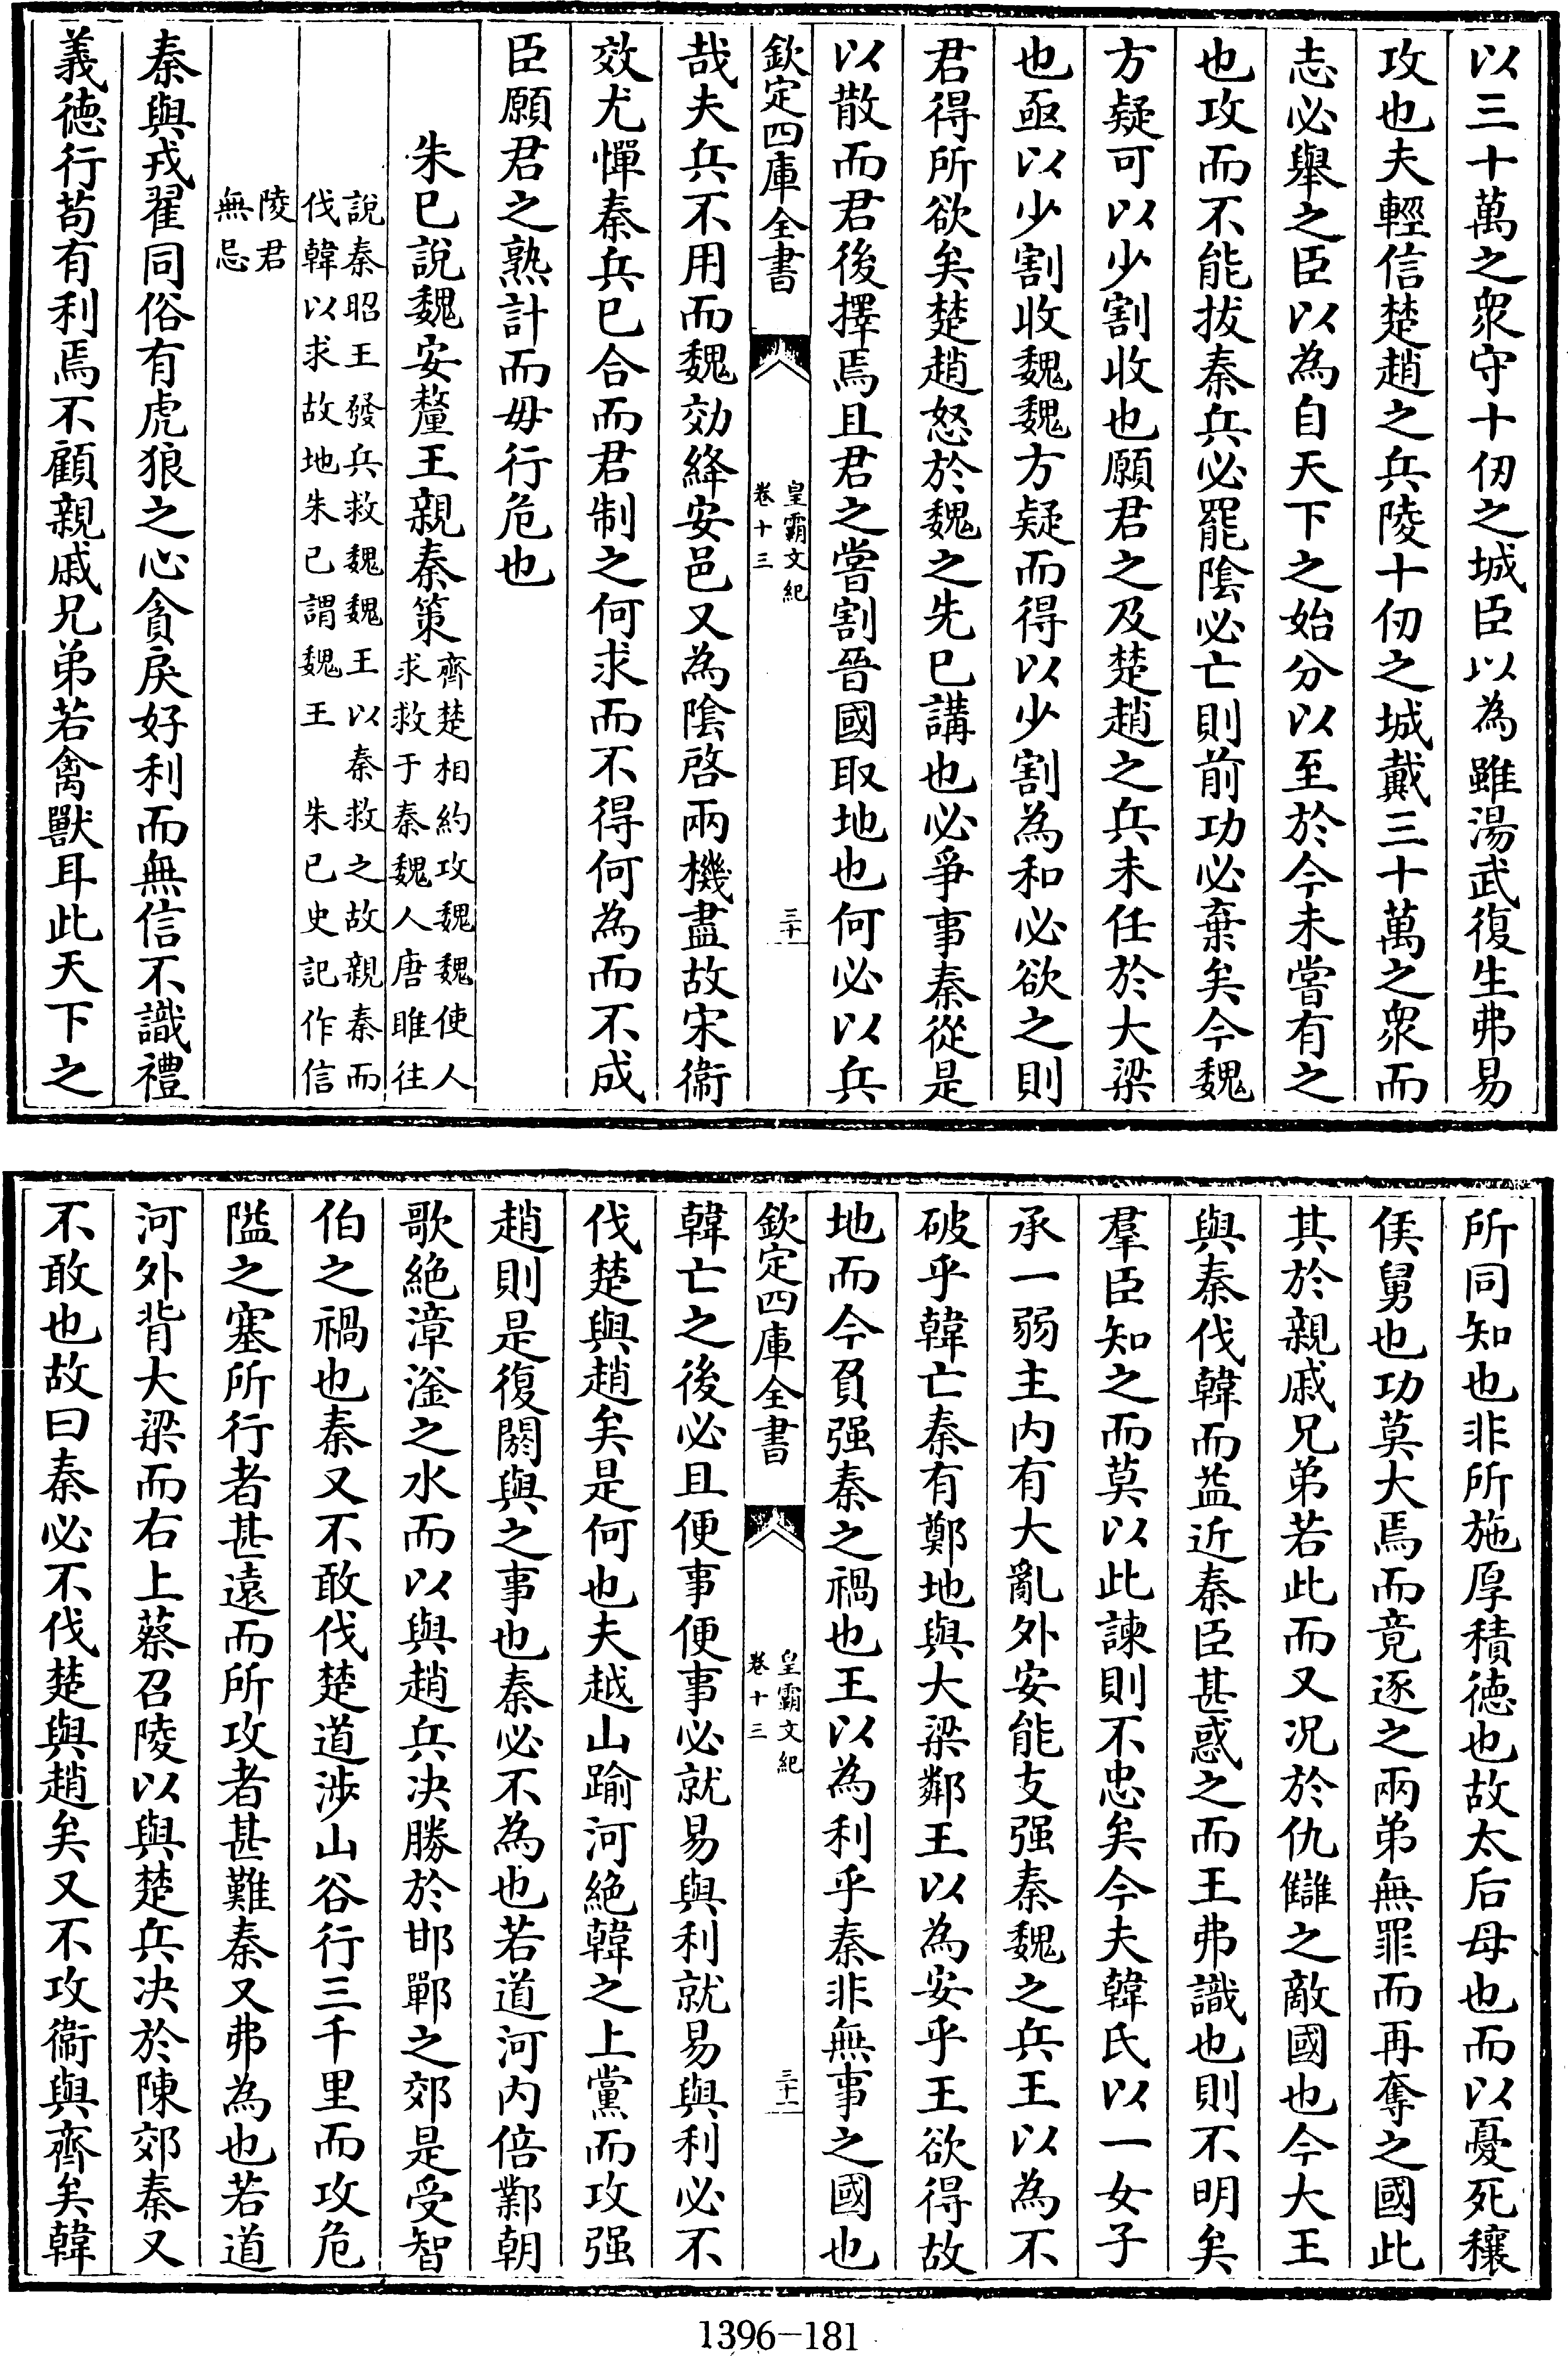 以三十萬之衆守十仞之城臣以為雖湯武復生弗易
攻也夫輕信楚趙之兵陵十仞之城戴三十萬之衆而
志必舉之臣以為自天下之始分以至於今未嘗有之
也攻而不能拔秦兵必罷陰必亡則前功必棄矣今魏
方疑可以少割收也願君之及楚趙之兵未任於大梁
也亟以少割收魏魏方疑而得以少割為和必欲之則
君得所欲矣楚趙怒於魏之先已講也必爭事秦從是
以散而君後擇焉且君之嘗割晉國取地也何必以兵
欽定四庫全書
皇霸文紀
卷十三
三十
哉夫兵不用而魏効絳安邑又為陰啓兩機盡故宋衞
效尤憚秦兵已合而君制之何求而不得何為而不成
臣願君之熟計而毋行危也
朱已說魏安釐王親秦策齊楚相約攻魏魏使人
求救于秦魏人唐雎往
說秦昭王發兵救魏魏王以秦救之故親秦而
伐韓以求故地朱已謂魏王 朱已史記作信
陵君
無忌
秦與戎翟同俗有虎狼之心貪戾好利而無信不識禮
義德行苟有利焉不顧親戚兄弟若禽獸耳此天下之
所同知也非所施厚積德也故太后母也而以憂死穰
侯舅也功莫大焉而竟逐之兩弟無罪而再奪之國此
其於親戚兄弟若此而又況於仇讎之敵國也今大王
與秦伐韓而益近秦臣甚惑之而王弗識也則不明矣
羣臣知之而莫以此諫則不忠矣今夫韓氏以一女子
承一弱主內有大亂外安能支强秦魏之兵王以為不
破乎韓亡秦有鄭地與大梁鄰王以為安乎王欲得故
地而今負强秦之禍也王以為利乎秦非無事之國也
欽定四庫全書
皇霸文紀
卷十三
三十一
韓亡之後必且便事便事必就易與利就易與利必不
伐楚與趙矣是何也夫越山踰河絶韓之上黨而攻强
趙則是復閼與之事也秦必不為也若道河內倍鄴朝
歌絶漳滏之水而以與趙兵決勝於邯鄲之郊是受智
伯之禍也秦又不敢伐楚道涉山谷行三千里而攻危
隘之塞所行者甚遠而所攻者甚難秦又弗為也若道
河外背大梁而右上蔡召陵以與楚兵決於陳郊秦又
不敢也故曰秦必不伐楚與趙矣又不攻衞與齊矣韓
1396-181